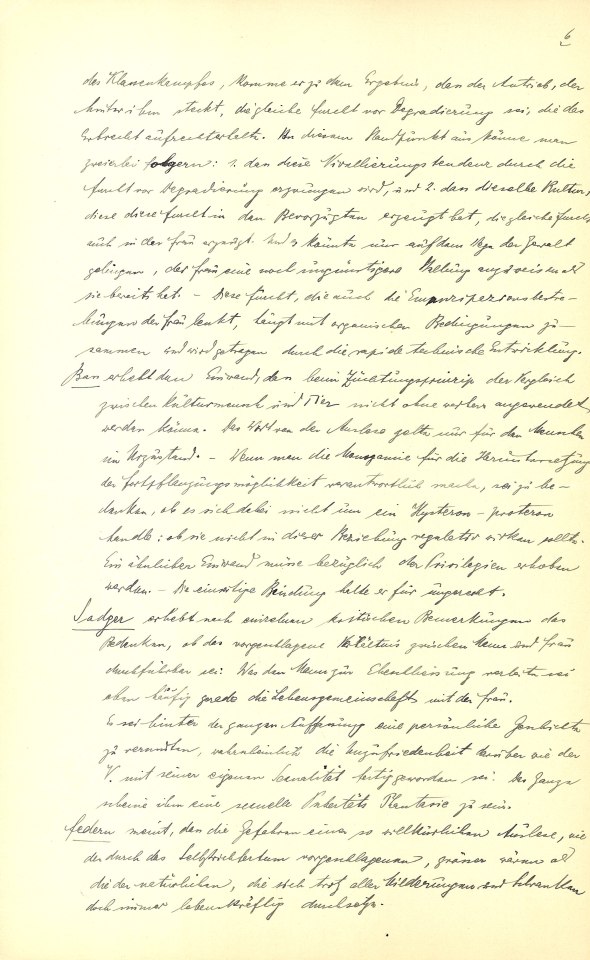 6
des Klassenkampfes, komme er zu dem Ergebnis, dass der Antrieb, der
hinter ihm steckt, die gleiche Furcht vor Degradierung sei, die das
Erbrecht aufrechterhelte. Von diesem Standpunkt aus könne man
zweierlei folgern: 1. dass diese Nivellierungstendenz durch die
Furcht vor Degradierung erzwungen wird, und 2. dass dieselbe Kultur,
die diese Furcht in den Bevorzugten erzeugt hat, die gleiche Furcht
auch in der Frau erzeugt. Und es könnte nur auf dem Wege der Gewalt
gelingen, der Frau eine noch ungünstigere Stellung anzuweisen als
sie bereits hat. – Diese Furcht, die auch die Emanzipationsbestre-
bungen der Frau lenkt, hängt mit organischen Bedingungen zu-
sammen und wird getragen durch die rapide technische Entwicklung.
Bass erhebt den Einwand, dass beim Züchtungsprinzip der Vergleich
zwischen Kulturmensch und Tier nicht ohne weiters angewendet
werden könne. Das Wort von der Auslese gelte nur für den Menschen
im Urzustand. – Wenn man die Monogamie für die Heruntersetzung
der Fortpflanzungsmöglichkeit verantwortlich mache, sei zu be-
denken, ob es sich dabei nicht um ein Hysteron-proteron
handle: ob sie nicht in dieser Beziehung regulativ wirken sollte.
Ein ähnlicher Einwand müsse bezüglich der Privilegien erhoben
werden. – Die einseitige Bindung halte er für ungerecht.
Sadger erhebt nach einzelnen kritischen Bemerkungen das
Bedenken, ob das vorgeschlagene Verhältnis zwischen Mann und Frau
durchführbar sei: Was den Mann zur Eheschliessung verleite sei
eben häufig gerade die Lebensgemeinschaft mit der Frau.
Es sei hinter der ganzen Auffassung eine persönliche Geschichte
zu vermuten, wahrscheinlich die Unzufriedenheit darüber wie der
V. mit seiner eigenen Sexualität fertig geworden sei. Das Ganze
scheine ihm eine sexuelle Pubertäts Phantasie zu sein.
Federn meint, dass die Gefahren einer so willkürlichen Auslese, wie
der durch das Selbstrichtertum vorgeschlagenen, grösser wären als
die der natürlichen, die sich trotz aller Milderungen und Schranken
doch immer lebenskräftig durchsetze.